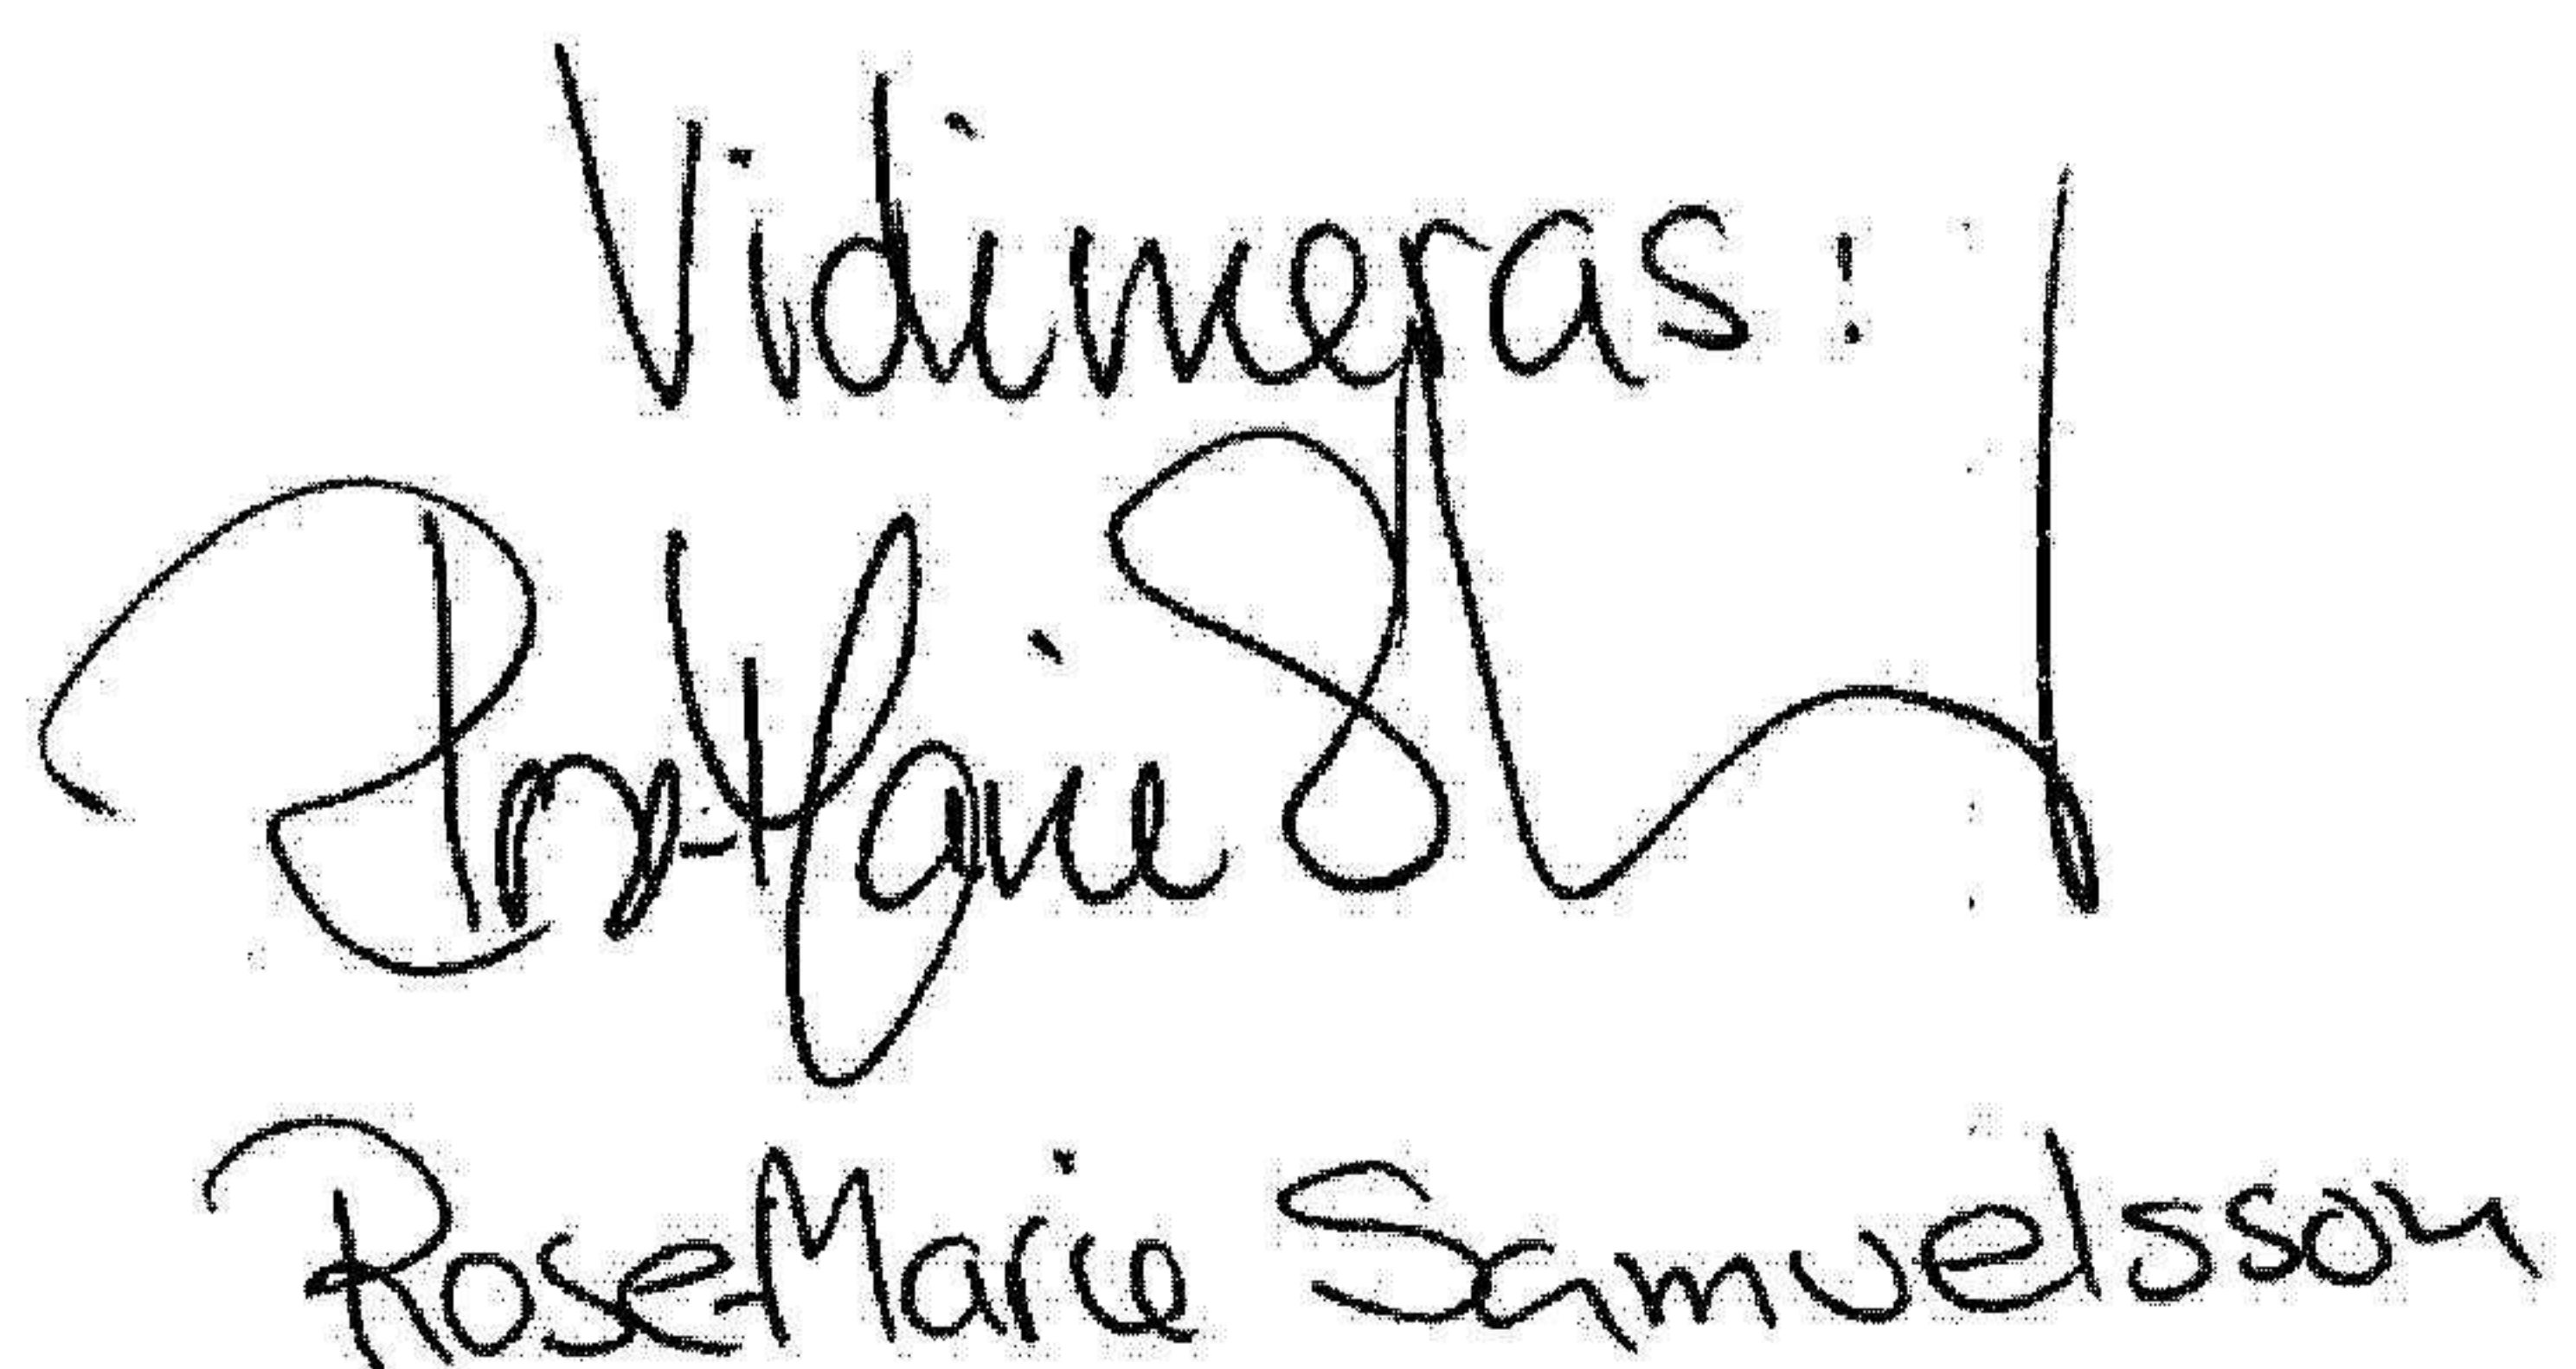 Vidimeras:
Rose-Marie
Rose-Marie Samuelsson